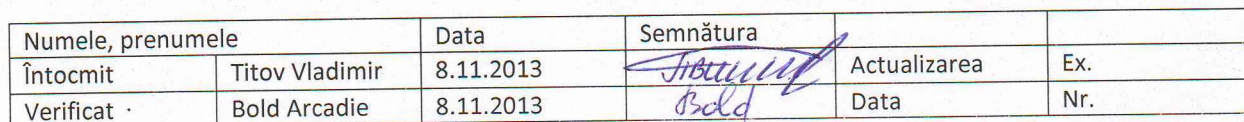 Numele, prenumele Data Semnătura
Întocmit Titov Vladimir 8.11.2013 Actualizarea Ex.
Verificat Bold Arcadie 8.11.2013 Bold Data Nr.